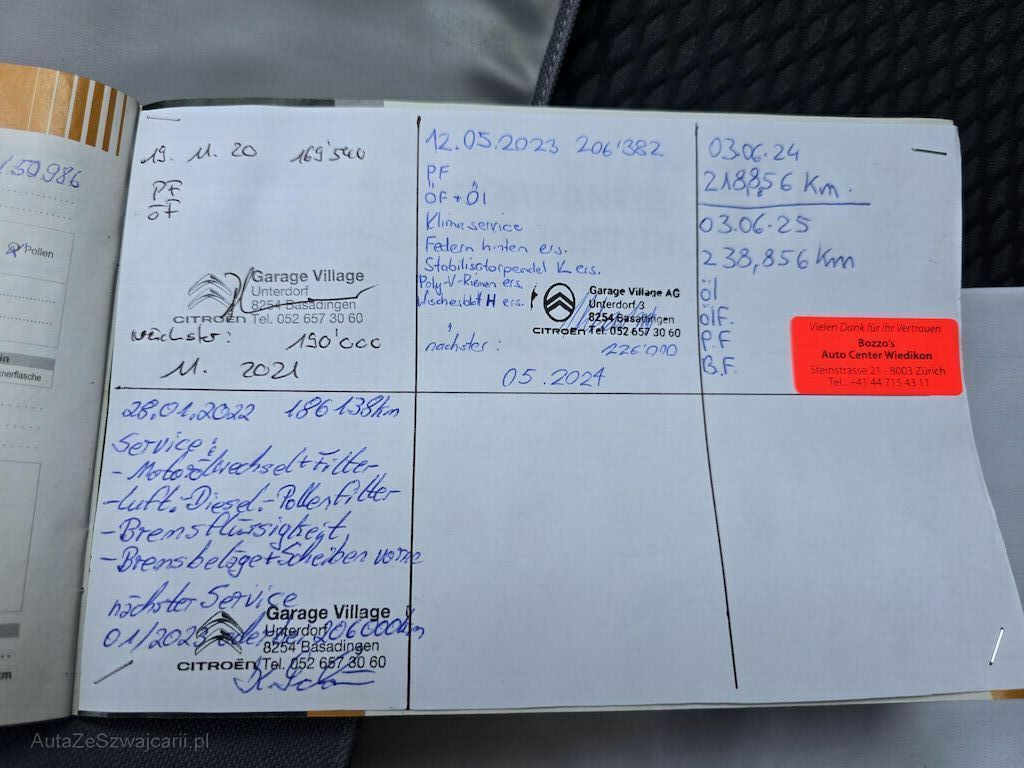 150986
Pollen
19. 11. 20 169'540
PF
ÖF
Garage Village
Unterdorf
8254 Basadingen
CITROËN Tel. 052 657 30 60
nächster: 190'000
11. 2021
28.01.2022 186138km
Service:
- Motorölwechsel + Filter
- Luft.-Diesel.-Pollenfilter
- Bremsflüssigkeit
- Bremsbeläge + Scheiben vorne
nächster Service
01/2023 oder 206000km
Garage Village
Unterdorf
8254 Basadingen
CITROËN Tel. 052 657 30 60
12.05.2023 206'382
PF
ÖF + Öl
Klimaservice
Federn hinten ers.
Stabilisatorpendel V ers.
Poly-V-Riemen ers.
Wischerblatt H ers.
Garage Village AG
Unterdorf 3
8254 Basadingen
CITROËN Tel. 052 657 30 60
nächster: 226'000
05.2024
03.06.24
218,856 Km.
03.06.25
238,856 Km
Öl
ÖlF.
P.F
B.F.
Vielen Dank für Ihr Vertrauen
Bozzo's
Auto Center Wiedikon
Steinstrasse 21 - 8003 Zürich
Tel.: +41 44 715 43 11
AutaZeSzwajcarii.pl